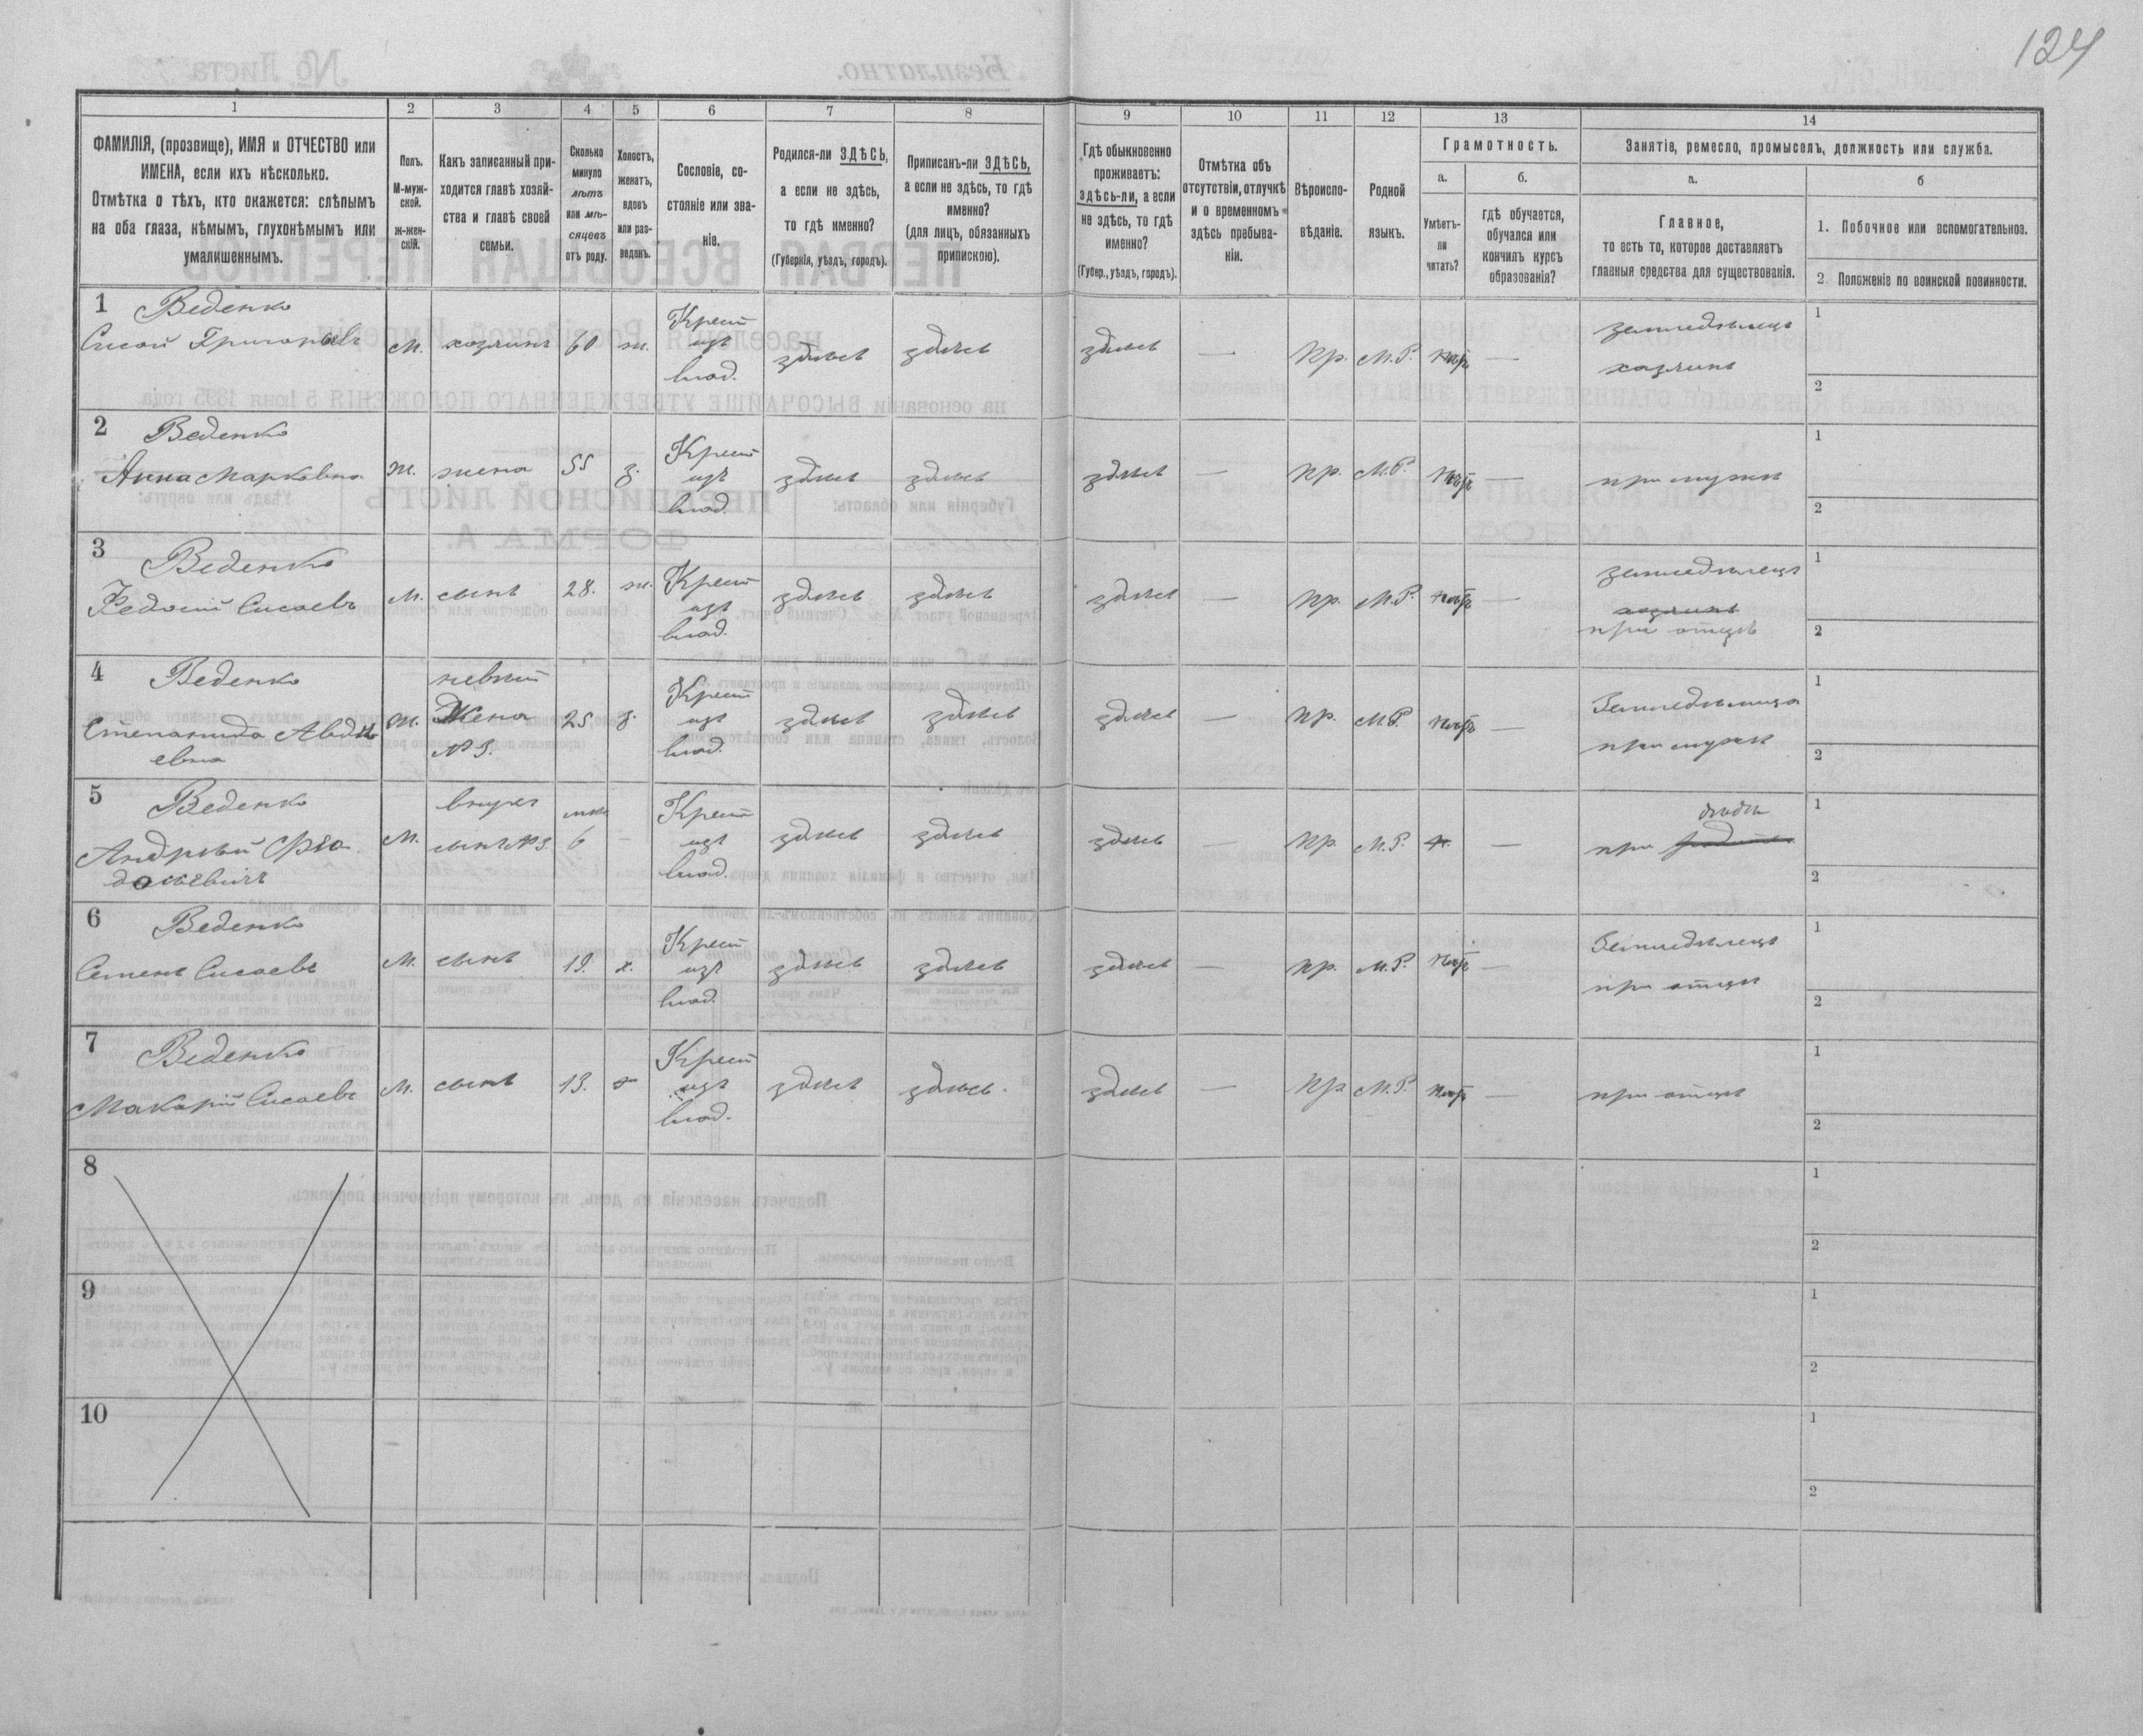 124
1
2
3
4
5
6
7
8
9
10
11
12
13
14
ФАМИЛІЯ, (прозвище), ИМЯ и ОТЧЕСТВО или
ИМЕНА, если ихъ нѣсколько.
Отмѣтка о тѣхъ, кто окажется: слѣпымъ
на оба глаза, нѣмымъ, глухонѣмымъ или
умалишеннымъ.
Полъ.
М-муж-
ской.
ж-жен-
скій.
Какъ записанный при-
ходится главѣ хозяй-
ства и главѣ своей
семьи.
Сколько
минуло
лѣтъ
или мѣ-
сяцевъ
отъ роду.
Холостъ,
женатъ,
вдовъ
или раз-
веденъ.
Сословіе, со-
стояніе или зва-
ніе.
Родился-ли ЗДѢСЬ,
а если не здѣсь,
то гдѣ именно?
(Губернія, уѣздъ, городъ).
Приписанъ-ли ЗДѢСЬ,
а если не здѣсь, то гдѣ
именно?
(для лицъ, обязанныхъ
припискою).
Гдѣ обыкновенно
проживаетъ:
здѣсь-ли, а если
не здѣсь, то гдѣ
именно?
(Губер., уѣздъ, городъ).
Отмѣтка объ
отсутствіи, отлучкѣ
и о временномъ
здѣсь пребыва-
ніи.
Вѣроиспо-
вѣданіе.
Родной
языкъ.
Грамотность.
а.
Умѣетъ-
ли
читать?
б.
гдѣ обучается,
обучался или
кончилъ курсъ
образованія?
Занятіе, ремесло, промыселъ, должность или служба.
а.
Главное,
то есть то, которое доставляетъ
главныя средства для существованія.
б
1. Побочное или вспомогательное.
2 Положеніе по воинской повинности.
1 Веденко
Сисой Григорьевъ
М. хозяинъ 60 ж. Крест изъ влад. здѣсь здѣсь здѣсь — Пр. М.Р. нѣтъ —
земледѣлецъ
хозяинъ
1
2
2 Веденко
Анна Марковна
ж. жена 55 з. Крест изъ влад. здѣсь здѣсь здѣсь — Пр. М.Р. нѣтъ —
при мужѣ
1
2
3 Веденко
Федосій Сисоевъ
М. сынъ 28. ж. Крест изъ влад. здѣсь здѣсь здѣсь — Пр. М.Р. нѣтъ —
земледѣлецъ
хозяинъ
при отцѣ
1
2
4 Веденко
Степанида Авдѣ
евна
ж. невѣст Жена № 3. 25 з. Крест изъ влад. здѣсь здѣсь здѣсь — Пр. М.Р. нѣтъ —
Земледѣлица
при мужѣ
1
2
5 Веденко
Андрѣй Фео
досіевичъ
М. внукъ сынъ № 3. 6 — Крест изъ влад. здѣсь здѣсь здѣсь — Пр. М.Р. н. —
дѣдѣ
при
1
2
6 Веденко
Семенъ Сисоевъ
М. сынъ 19. х. Крест изъ влад. здѣсь здѣсь здѣсь — Пр. М.Р. нѣтъ —
Земледѣлецъ
при отцѣ
1
2
7 Веденко
Макарій Сисоевъ
М. сынъ 13. х Крест изъ влад. здѣсь здѣсь. здѣсь — Пр. М.Р. нѣтъ —
при отцѣ
1
2
8
1
2
9
1
2
10
1
2